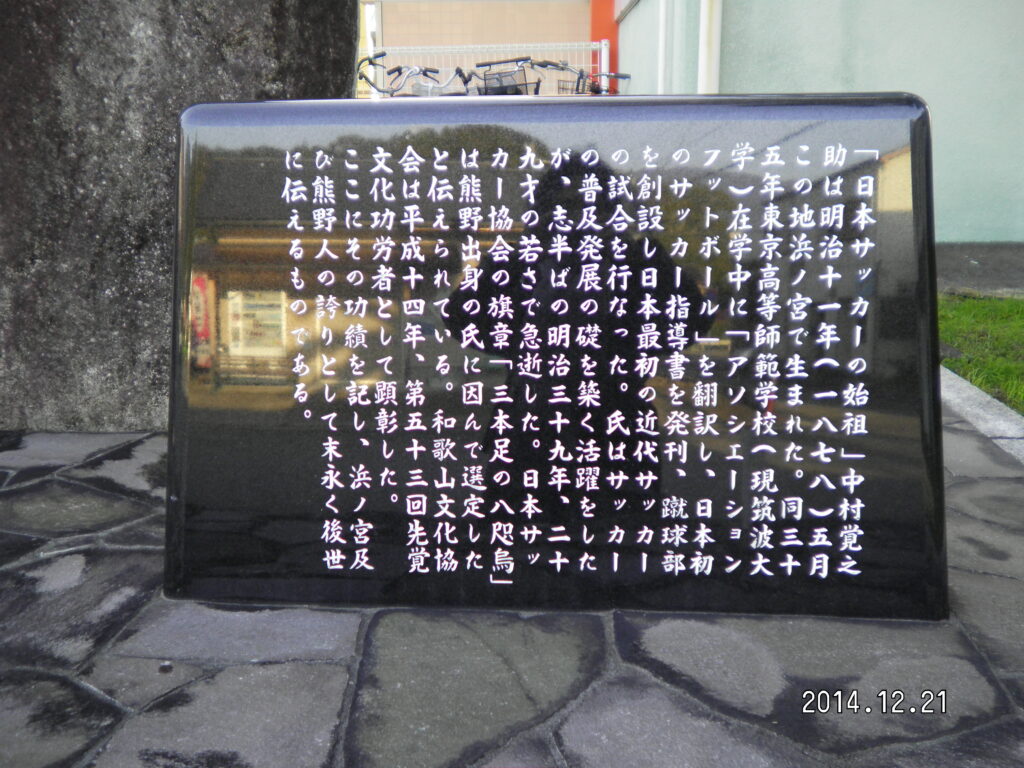 「日本サッカーの始祖」中村覚之
助は明治十一年(一八七八)五月
この地浜ノ宮で生まれた。同三十
五年東京高等師範学校(現筑波大
学)在学中に「アソシエーション
フットボール」を翻訳し、日本初
のサッカー指導書を発刊、蹴球部
を創設し日本最初の近代サッカー
の試合を行なった。氏はサッカー
の普及発展の礎を築く活躍をした
が、志半ばの明治三十九年、二十
九才の若さで急逝した。日本サッ
カー協会の旗章「三本足の八咫烏」
は熊野出身の氏に因んで選定した
と伝えられている。和歌山文化協
会は平成十四年、第五十三回先覚
文化功労者として顕彰した。
ここにその功績を記し、浜ノ宮及
び熊野人の誇りとして末永く後世
に伝えるものである。
2014.12.21